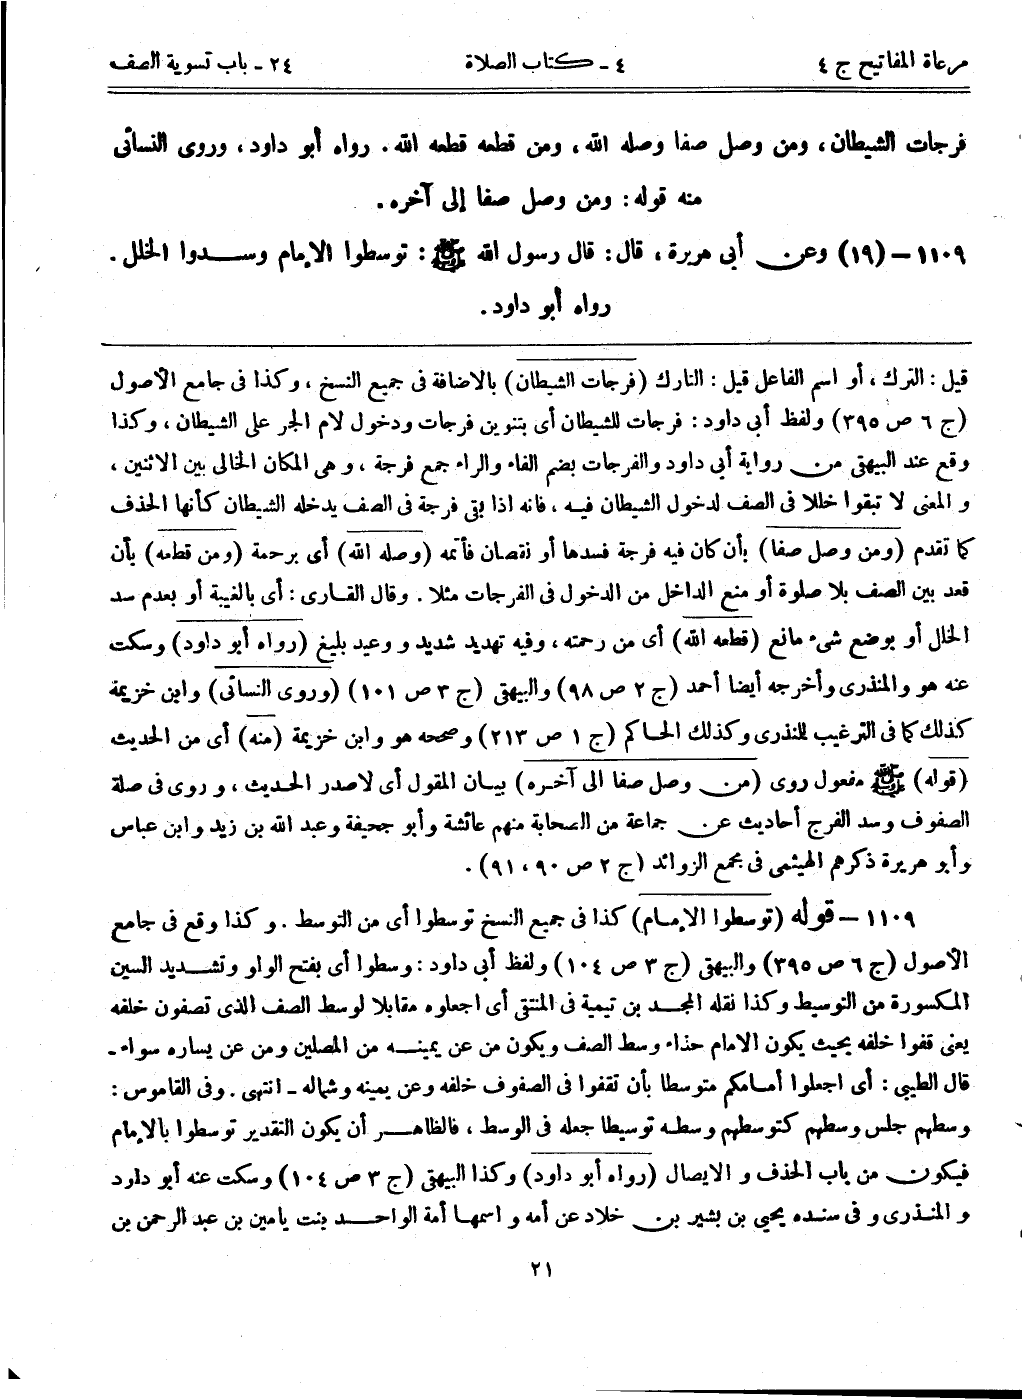 مرعاة المفاتيح ج ٤
٤ - كتاب الصلاة
٢٤ - باب تسوية الصف
فرجات الشيطان، ومن وصل صفا وصله الله، ومن قطعه قطعه الله. رواه أبو داود، وروى النسائى
منه قوله: ومن وصل صفا إلى آخره.
١١٠٩ – (١٩) وعن أبى هريرة، قال: قال رسول الله ﷺ: توسطوا الإمام وسدوا الخلل.
رواه أبو داود.
قيل: الترك، أو اسم الفاعل قيل: التارك (فرجات الشيطان) بالاضافة فى جميع النسخ، وكذا فى جامع الأصول
(ج ٦ ص ٣٩٥) ولفظ أبى داود: فرجات للشيطان أى بتنوين فرجات ودخول لام الجر على الشيطان، وكذا
وقع عند البيهقى من رواية أبى داود والفرجات بضم الفاء والراء جمع فرجة، وهى المكان الخالى بين الاثنين،
و المعنى لا تبقوا خللا فى الصف لدخول الشيطان فيه، فانه اذا بقى فرجة فى الصف يدخله الشيطان كأنها الحذف
كما تقدم (ومن وصل صفا) بأن كان فيه فرجة فسدها أو نقصان فأتمه (وصله الله) أى برحمة (ومن قطعه) بأن
قعد بين الصف بلا صلوة أو منع الداخل من الدخول فى الفرجات مثلا. وقال القارى: أى بالغيبة أو بعدم سد
الخلل أو بوضع شىء مانع (قطعه الله) أى من رحمته، وفيه تهديد شديد و وعيد بليغ (رواه أبو داود) وسكت
عنه هو والمنذرى وأخرجه أيضا أحمد (ج ٢ ص ٩٨) والبيهقى (ج ٣ ص ١٠١) (وروى النسائى) وابن خزيمة
كذلك كما فى الترغيب للنذرى وكذلك الحاكم (ج ١ ص ٢١٣) وصححه هو وابن خزيمة (منه) أى من الحديث
(قوله) ﷺ مفعول روى (من وصل صفا الى آخره) بيان المقول أى لاصدر الحديث، و روى فى صلة
الصفوف وسد الفرج أحاديث عن جماعة من الصحابة منهم عائشة وأبو جحيفة وعبد الله بن زيد وابن عباس
وأبو هريرة ذكرهم الهيثمى فى مجمع الزوائد (ج ٢ ص ٩٠، ٩١).
١١٠٩ – قوله (توسطوا الإمام) كذا فى جميع النسخ توسطوا أى من التوسط. و كذا وقع فى جامع
الأصول (ج ٦ ص ٣٩٥) والبيهقى (ج ٣ ص ١٠٤) ولفظ أبى داود: وسطوا أى بفتح الواو وتشديد السين
المكسورة من التوسيط وكذا نقله المجد بن تيمية فى المنتقى أى اجعلوه مقابلا لوسط الصف الذى تصفون خلفه
يعنى قفوا خلفه بحيث يكون الامام حذاء وسط الصف ويكون من عن يمينه من المصلين ومن عن يساره سواء -
قال الطيبى: أى اجعلوا أمامكم متوسطا بأن تقفوا فى الصفوف خلفه وعن يمينه وشماله - انتهى. وفى القاموس:
وسطهم جلس وسطهم كتوسطهم وسطه توسيطا جعله فى الوسط، فالظاهر أن يكون التقدير توسطوا بالإمام
فيكون من باب الحذف و الايصال (رواه أبو داود) وكذا البيهقى (ج ٣ ص ١٠٤) وسكت عنه أبو داود
و المنذرى و فى سنده يحيى بن بشير بن خلاد عن أمه و اسمها أمة الواحد بنت يامين بن عبد الرحمن بن
٢١